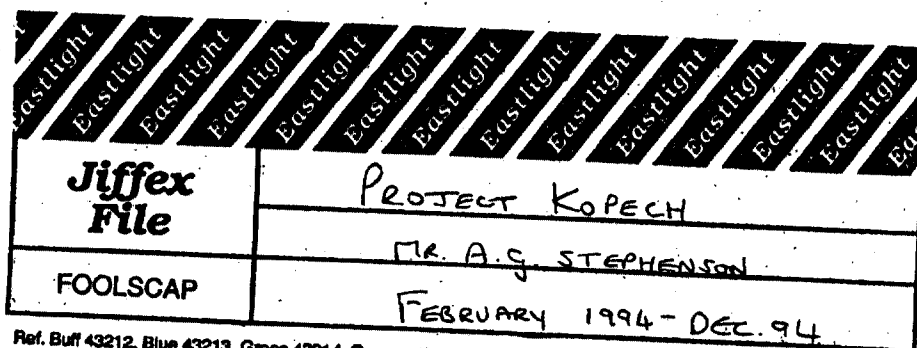 Eastlight Eastlight Eastlight Eastlight Eastlight Eastlight Eastlight Eastlight Eastlight Eastlight Eastlight Eastlight
Jiffex
File
FOOLSCAP
PROJECT KOPECH
MR. A.G. STEPHENSON
FEBRUARY 1994 - DEC. 94
Ref. Buff 43212, Blue 43213, Green